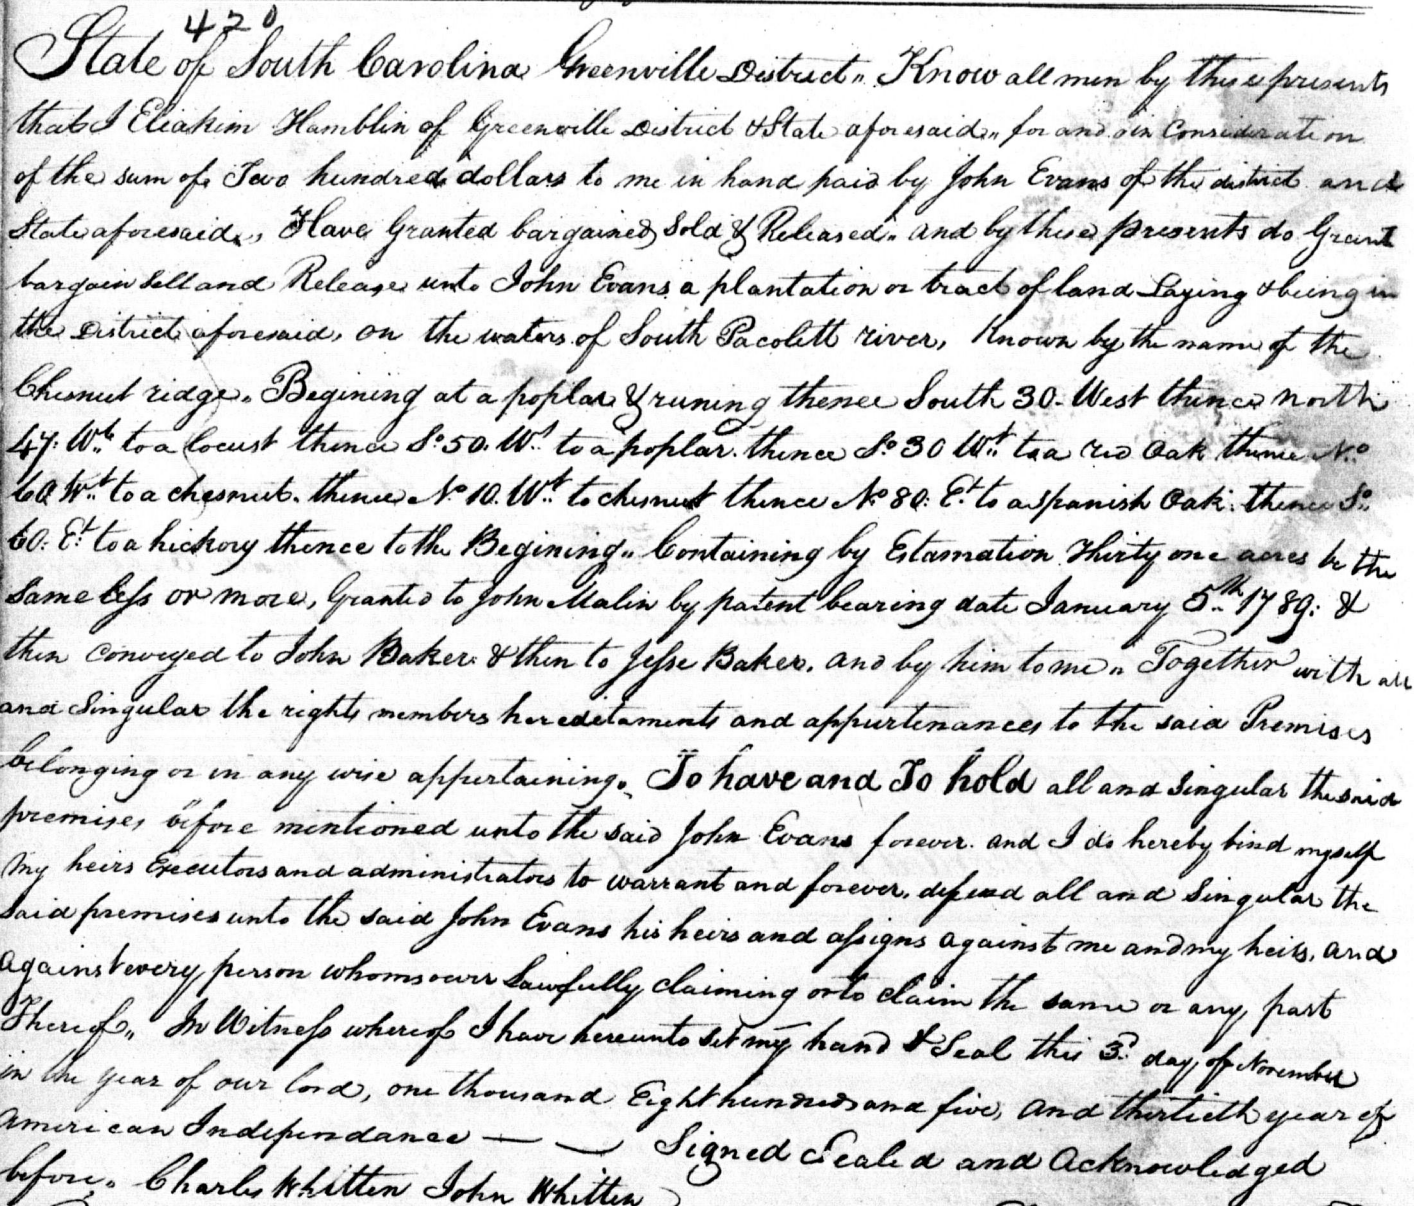 420
State of South Carolina Greenville District„ Know all men by these presents
that I Eliakim Hamblin of Greenville District & State aforesaid„ for and in Consideration
of the sum of Two hundred dollars to me in hand paid by John Evans of the district and
State aforesaid„ Have Granted bargained Sold & Released„ and by these presents do Grant
bargain Sell and Release unto John Evans a plantation or tract of land Laying & being in
the District aforesaid, on the waters of South Pacolett river, Known by the name of the
Chesnut ridge„ Begining at a poplar & runing thence South 30. West thence north
47. Wt. to a locust thence So. 50. Wt. to a poplar. thence So 30 Wt. to a red Oak thence No.
60 Wt. to a chesnut. thence No 10. Wt. to chesnut thence No 80: Et. to a spanish Oak. thence So.
60. Et. to a hickory thence to the Begining„ Containing by Estamation Thirty one acres be the
Same less or more, Granted to John Malin by patent bearing date January 5th. 1789: &
then conveyed to John Baker & then to Jesse Baker. and by him to me„ Together with all
and Singular the rights members hereditaments and appurtenances to the said Premises
belonging or in any wise appertaining„ To have and To hold all and Singular the said
premises before mentioned unto the said John Evans forever. and I do hereby bind myself
my heirs Executors and administrators to warrant and forever, defend all and Singular the
said premises unto the said John Evans his heirs and assigns against me and my heirs, and
against every person whomsoever Lawfully claiming or to claim the same or any part
Thereof„ In Witness whereof I have hereunto set my hand & Seal this 3d. day of November
in the year of our lord, one thousand Eight hundred and five, and thirtieth year of
american Independance — — Signed Sealed and Acknowledged
before„ Charles Whitten John Whitten